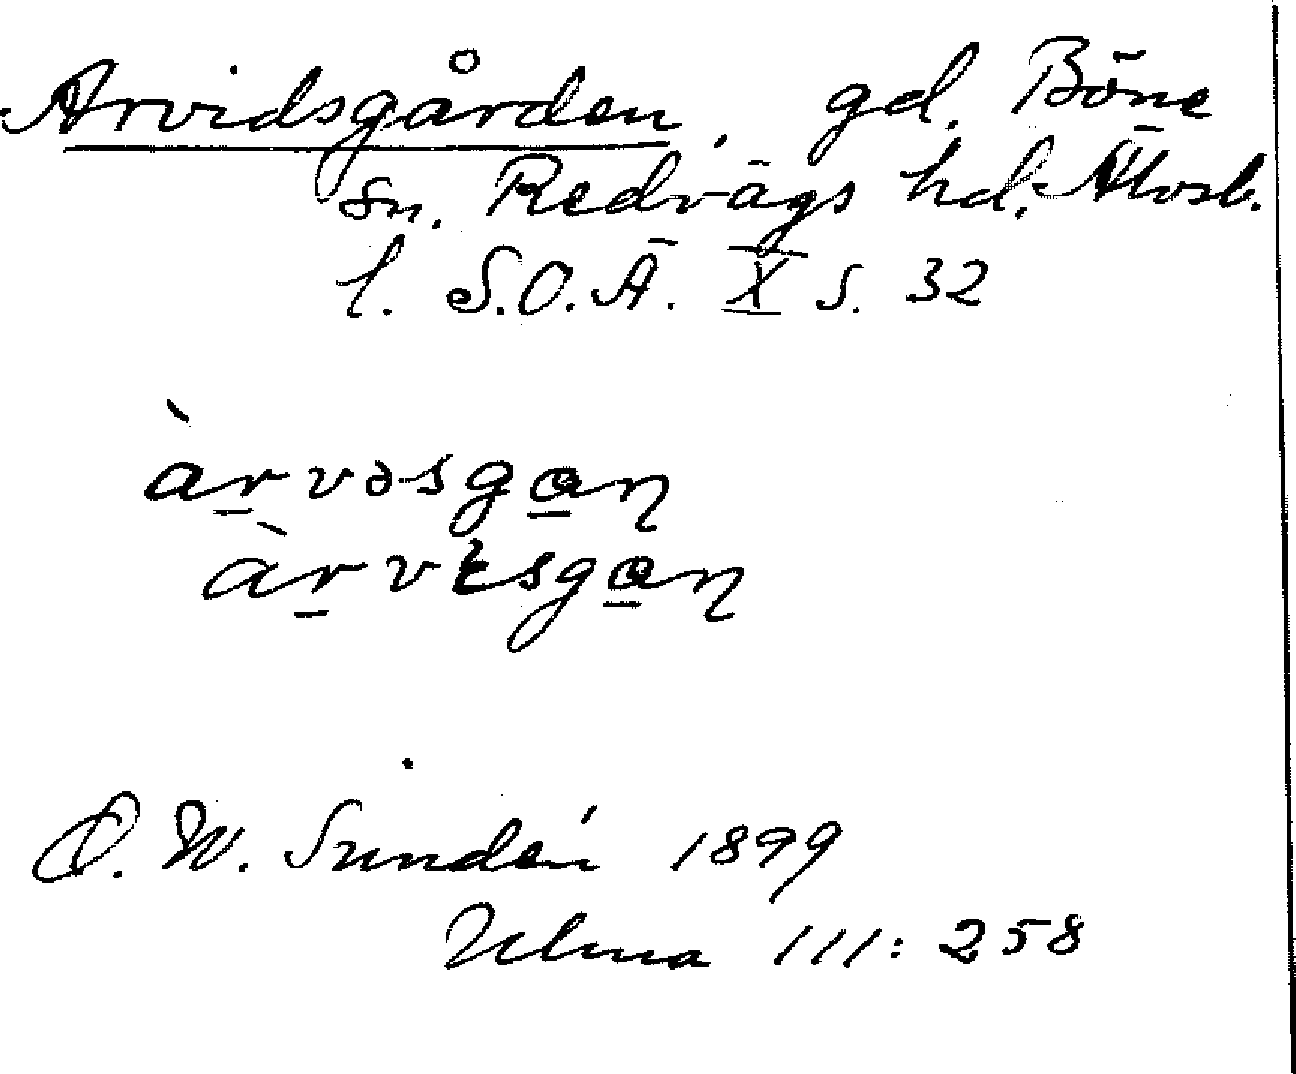 Arvidsgården, gd. Böne
sn. Redvägs hd. Älvsb.
l. S.O.Ä. X s. 32
àr̲vəsga̲ɳ
àr̲vɛsga̲ɳ
D. W. Sundén 1899
Ulma 111:258